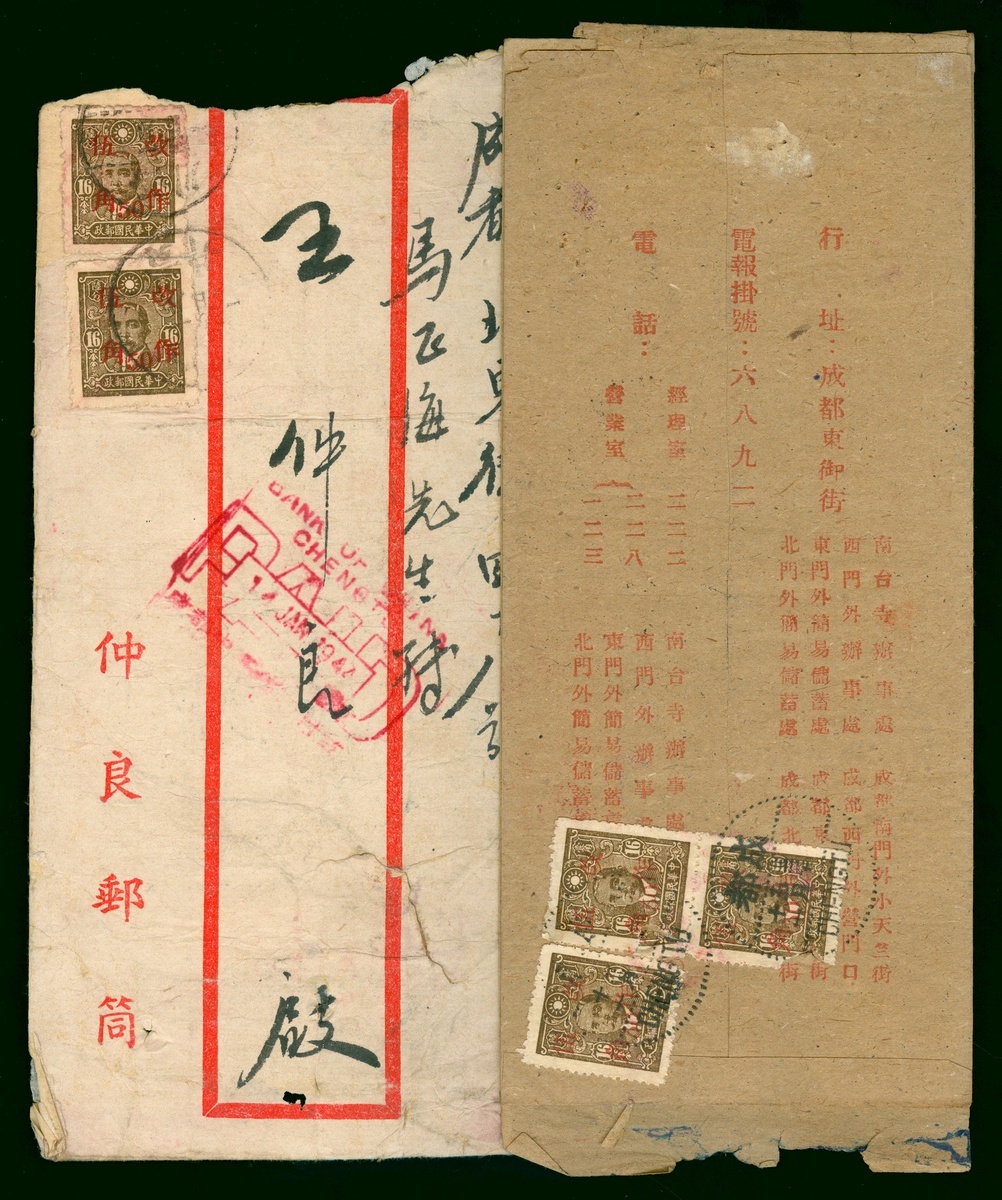 行　址：成都東御街
電報掛號：六八九二
電　話：
經理室　二二二
營業室　二二八
一二三
南台寺辦事處　成都南門外小天竺街
西門外辦事處　成都西門外營門口
東門外簡易儲蓄處　成都東
北門外簡易儲蓄處　成都北
街
街
南台寺辦事處
西門外辦事
東門外簡易儲蓄
北門外簡易儲蓄
馬正海先生轉
王仲良　啟
仲良郵筒
BANK OF CHINA
CHENGTU
14 JAN 1944
改作
伍角
50
16
16
中華民國郵政
改作
伍角
50
16
16
中華民國郵政
成都
CHENGTU
CHENGTU